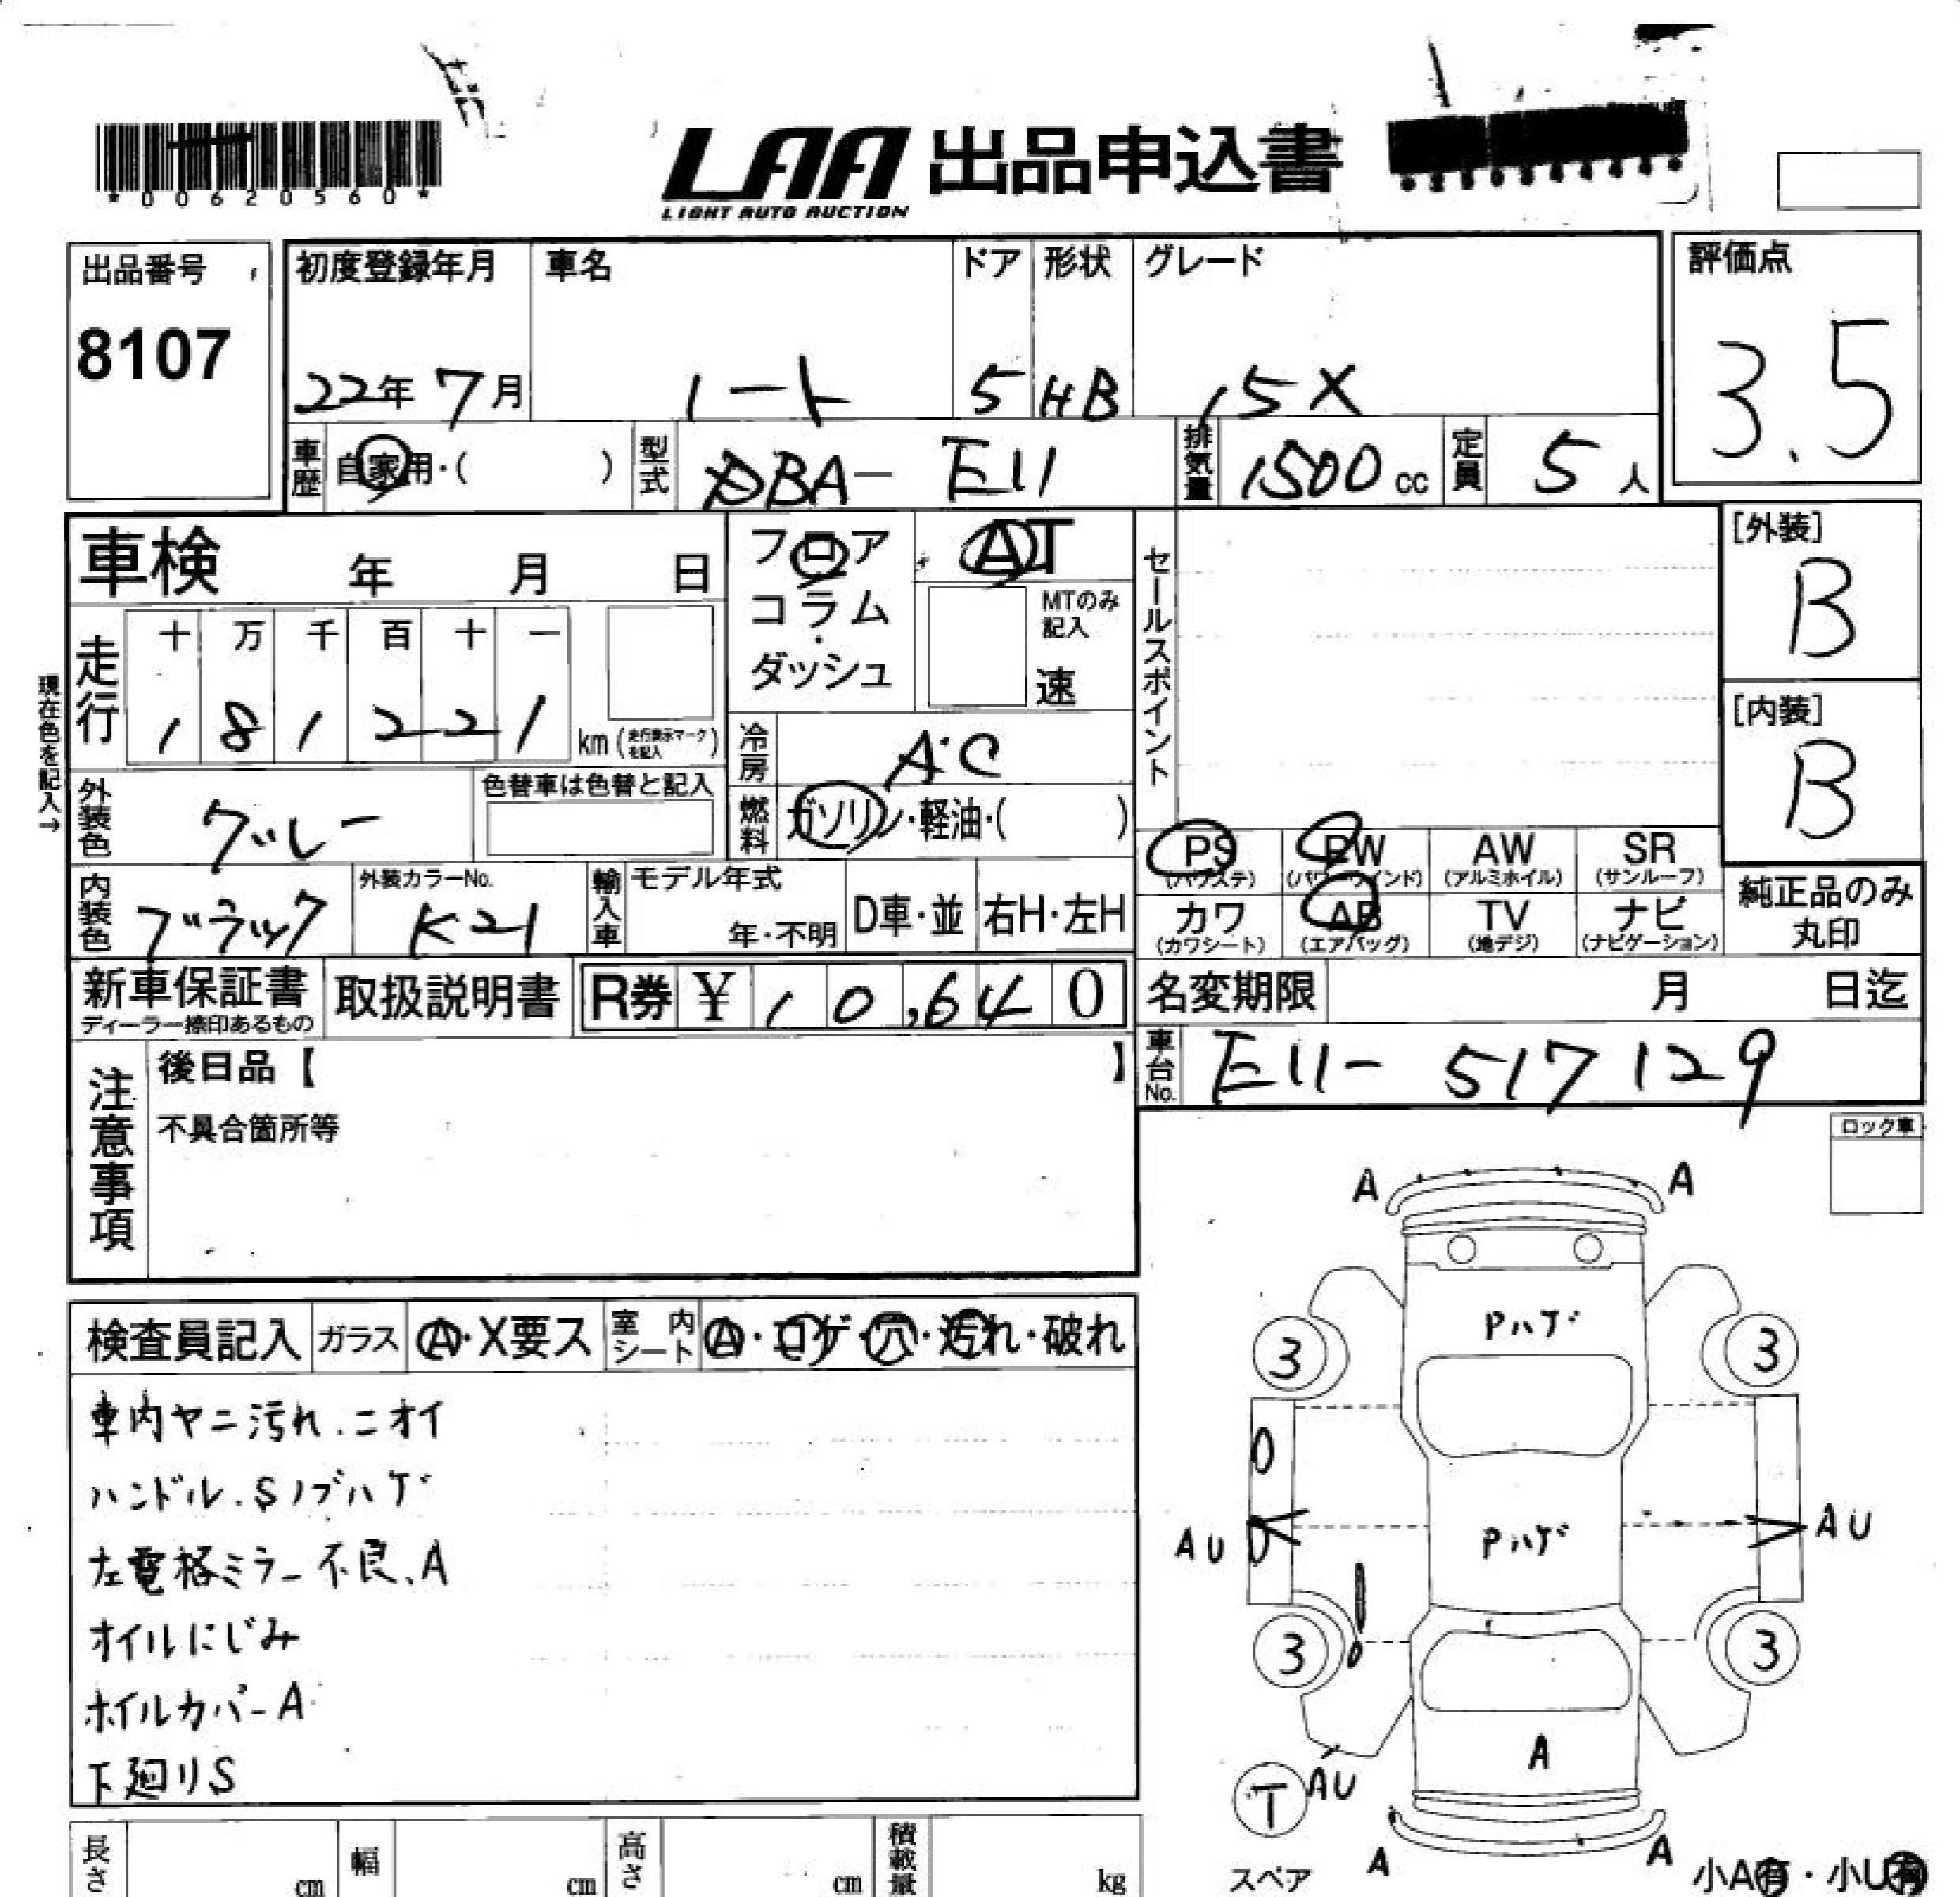 *00620560*
LAA 出品申込書
LIGHT AUTO AUCTION
出品番号
8107
初度登録年月
22年 7月
車名
ノート
ドア
5
形状
HB
グレード
15X
評価点
3.5
車歴 自家用・( )
型式 DBA- E11
排気量 1500 cc
定員 5人
車検 年 月 日
フロア
コラム
・
ダッシュ
AT
MTのみ
記入
速
セールスポイント
[外装]
B
[内装]
B
現在色を記入→
走行
十 万 千 百 十 一
1 8 1 2 2 1
km (走行表示マークを記入)
冷房 AC
外装色 グレー
色替車は色替と記入
燃料 ガソリン・軽油・( )
内装色 ブラック
外装カラーNo.
K21
輸入車
モデル年式
年・不明
D車・並
右H・左H
PS
(パワステ)
PW
(パワーウインド)
AW
(アルミホイル)
SR
(サンルーフ)
カワ
(カワシート)
AB
(エアバッグ)
TV
(地デジ)
ナビ
(ナビゲーション)
純正品のみ
丸印
新車保証書
ディーラー捺印あるもの
取扱説明書
R券 ¥ 10,640
名変期限 月 日迄
車台No. E11- 517129
注意事項
後日品【 】
不具合箇所等
ロック車
検査員記入
ガラス A・X要ス
室内シート A・コゲ・穴・汚れ・破れ
車内ヤニ汚れ.ニオイ
ハンドル.Sノブハゲ
左電格ミラー不良、A
オイルにじみ
ホイルカバーA
下廻りS
A A
Pハゲ
3 3
AU Pハゲ AU
3 3
A
T AU
スペア
A A
小A有・小U有
長さ cm
幅 cm
高さ cm
積載量 kg